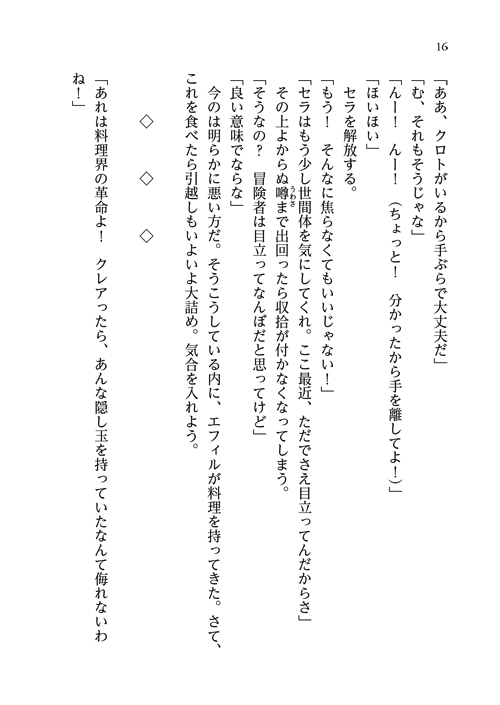 16
「ああ、クロトがいるから手ぶらで大丈夫だ」
「む、それもそうじゃな」
「んー！　んー！　（ちょっと！　分かったから手を離してよ！）」
「ほいほい」
　セラを解放する。
「もう！　そんなに焦らなくてもいいじゃない！」
「セラはもう少し世間体を気にしてくれ。ここ最近、ただでさえ目立ってんだからさ」
　その上よからぬ噂まで出回ったら収拾が付かなくなってしまう。
「そうなの？　冒険者は目立ってなんぼだと思ってけど」
「良い意味でならな」
　今のは明らかに悪い方だ。そうこうしている内に、エフィルが料理を持ってきた。さて、
これを食べたら引越しもいよいよ大詰め。気合を入れよう。
◇　◇　◇
「あれは料理界の革命よ！　クレアったら、あんな隠し玉を持っていたなんて侮れないわ
ね！」
うわさ